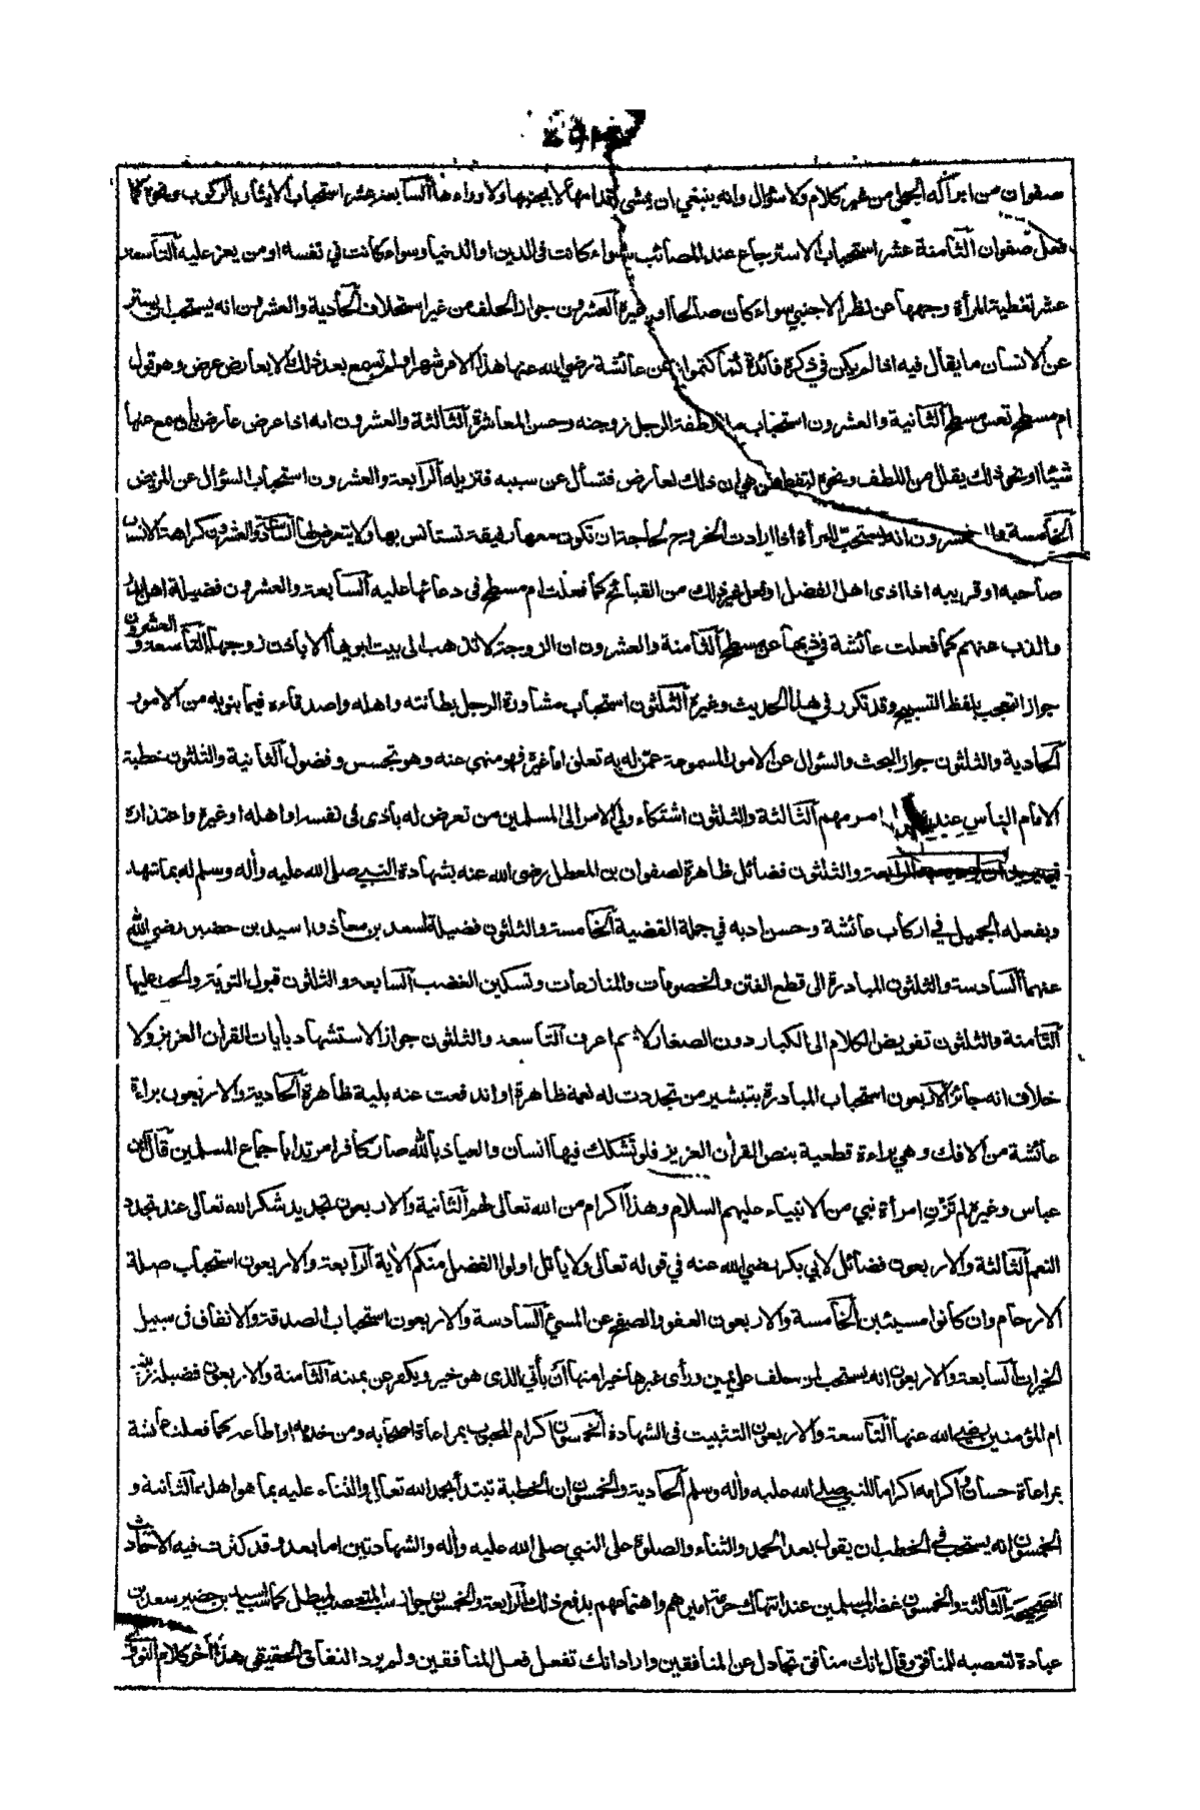 صفوان من ابراكه الجمل من غير كلام ولا سؤال وانه ينبغي ان يمشي قدامها لا بجنبها ولا وراءها السابعة عشر استحباب الايثار بالركوب ونحوه كما
فعل صفوان الثامنة عشر استحباب الاسترجاع عند المصائب سواء كانت في الدين او الدنيا وسواء كانت في نفسه او من يعز عليه التاسعة
عشر تغطية المرأة وجهها عن نظر الاجنبي سواء كان صالحا او غيره العشرون جواز الحلف من غير استحلاف الحادية والعشرون انه يستحب ان يستر
عن الانسان ما يقال فيه اذا لم يكن في ذكره فائدة كما كتموا عن عائشة رضي الله عنها هذا الامر شهرا ولم تسمع بعد ذلك الا بعارض عرض وهو قول
ام مسطح تعس مسطح الثانية والعشرون استحباب ملاطفة الرجل زوجته وحسن المعاشرة الثالثة والعشرون انه اذا عرض عارض بان سمع عنها
شيئا او نحو ذلك يقلل من اللطف ونحوه لتفطن هي ان ذلك لعارض فتسأل عن سببه فتزيله الرابعة والعشرون استحباب السؤال عن المريض
الخامسة والعشرون انه يستحب للمرأة اذا ارادت الخروج لحاجة ان تكون معها رفيقة تستانس بها ولا يتعرض لها السادسة والعشرون كراهة الانسان
صاحبه او قريبه اذا اذى اهل الفضل او فعل غير ذلك من القبائح كما فعلت ام مسطح في دعائها عليه السابعة والعشرون فضيلة اهل بدر
والذب عنهم كما فعلت عائشة في ذبها عن مسطح الثامنة والعشرون ان الزوجة لا تذهب الى بيت ابويها الا باذن زوجها التاسعة و العشرون
جواز التعجب بلفظ التسبيح وقد تكرر في هذا الحديث وغيره الثلثون استحباب مشاورة الرجل بطانته واهله واصدقاءه فيما ينوبه من الامور
الحادية والثلثون جواز البحث والسؤال عن الامور المسموعة عمن له به تعلق اما غيره فهو منهي عنه وهو تجسس وفضول الثانية والثلثون خطبة
الامام الناس عند امر مهم الثالثة والثلثون اشتكاء ولي الامر الى المسلمين من تعرض له باذى في نفسه او اهله او غيره واعتذاره
فيما يريد ان الرابعة والثلثون فضائل ظاهرة لصفوان بن المعطل رضى الله عنه بشهادة النبي صلى الله عليه واله وسلم له بما شهد
وبفعله الجميل في اركاب عائشة وحسن ادبه في جملة القضية الخامسة والثلثون فضيلة لسعد بن معاذ واسيد بن حضير رضي الله
عنهما السادسة والثلثون المبادرة الى قطع الفتن والخصومات والمنازعات وتسكين الغضب السابعة والثلثون قبول التوبة والحث عليها
الثامنة والثلثون تفويض الكلام الى الكبار دون الصغار لانهم اعرف التاسعة والثلثون جواز الاستشهاد بايات القران العزيز ولا
خلاف انه جائز الاربعون استحباب المبادرة بتبشير من تجددت له نعمة ظاهرة او اندفعت عنه بلية ظاهرة الحادية والاربعون براءة
عائشة من الافك وهي براءة قطعية بنص القران العزيز فلو تشكك فيها انسان والعياذ بالله صار كافرا مرتدا باجماع المسلمين قال ابن
عباس وغيره لم تزن امرأة نبي من الانبياء عليهم السلام وهذا اكرام من الله تعالى لهم الثانية والاربعون تجديد شكر الله تعالى عند تجدد
النعم الثالثة والاربعون فضائل لابي بكر رضي الله عنه في قوله تعالى ولا يأتل اولوا الفضل منكم الاية الرابعة والاربعون استحباب صلة
الارحام وان كانوا مسيئين الخامسة والاربعون العفو والصفح عن المسئ السادسة والاربعون استحباب الصدقة والانفاق في سبيل
الخيرات السابعة والاربعون انه يستحب لمن حلف على يمين ورأى غيرها خيرا منها ان يأتي الذي هو خير ويكفر عن يمينه الثامنة والاربعون فضيلة زينب
ام المؤمنين رضي الله عنها التاسعة والاربعون التثبيت في الشهادة الخمسون اكرام المحبوب بمراعاة اصحابه ومن خدمه او اطاعه كما فعلت عائشة
بمراعاة حسان اكرامه اكراما للنبي صلى الله عليه واله وسلم الحادية والخمسون ان الخطبة تبتدأ بحمد الله تعالى والثناء عليه بما هو اهله الثانية و
الخمسون انه يستحب في الخطب ان يقول بعد الحمد والثناء والصلوة على النبي صلى الله عليه واله والشهادتين اما بعد وقد كثرت فيه الاحاديث
الصحيحة الثالثة والخمسون غضب المسلمين عند انتهاك حرمة اميرهم واهتمامهم بدفع ذلك الرابعة والخمسون جواز سب المتعصب لمبطل كما سب اسيد بن حضير سعد بن
عبادة لتعصبه للمنافق وقال انك منافق تجادل عن المنافقين واراد انك تفعل فعل المنافقين ولم يرد النفاق الحقيقي هذا اخر كلام النووي